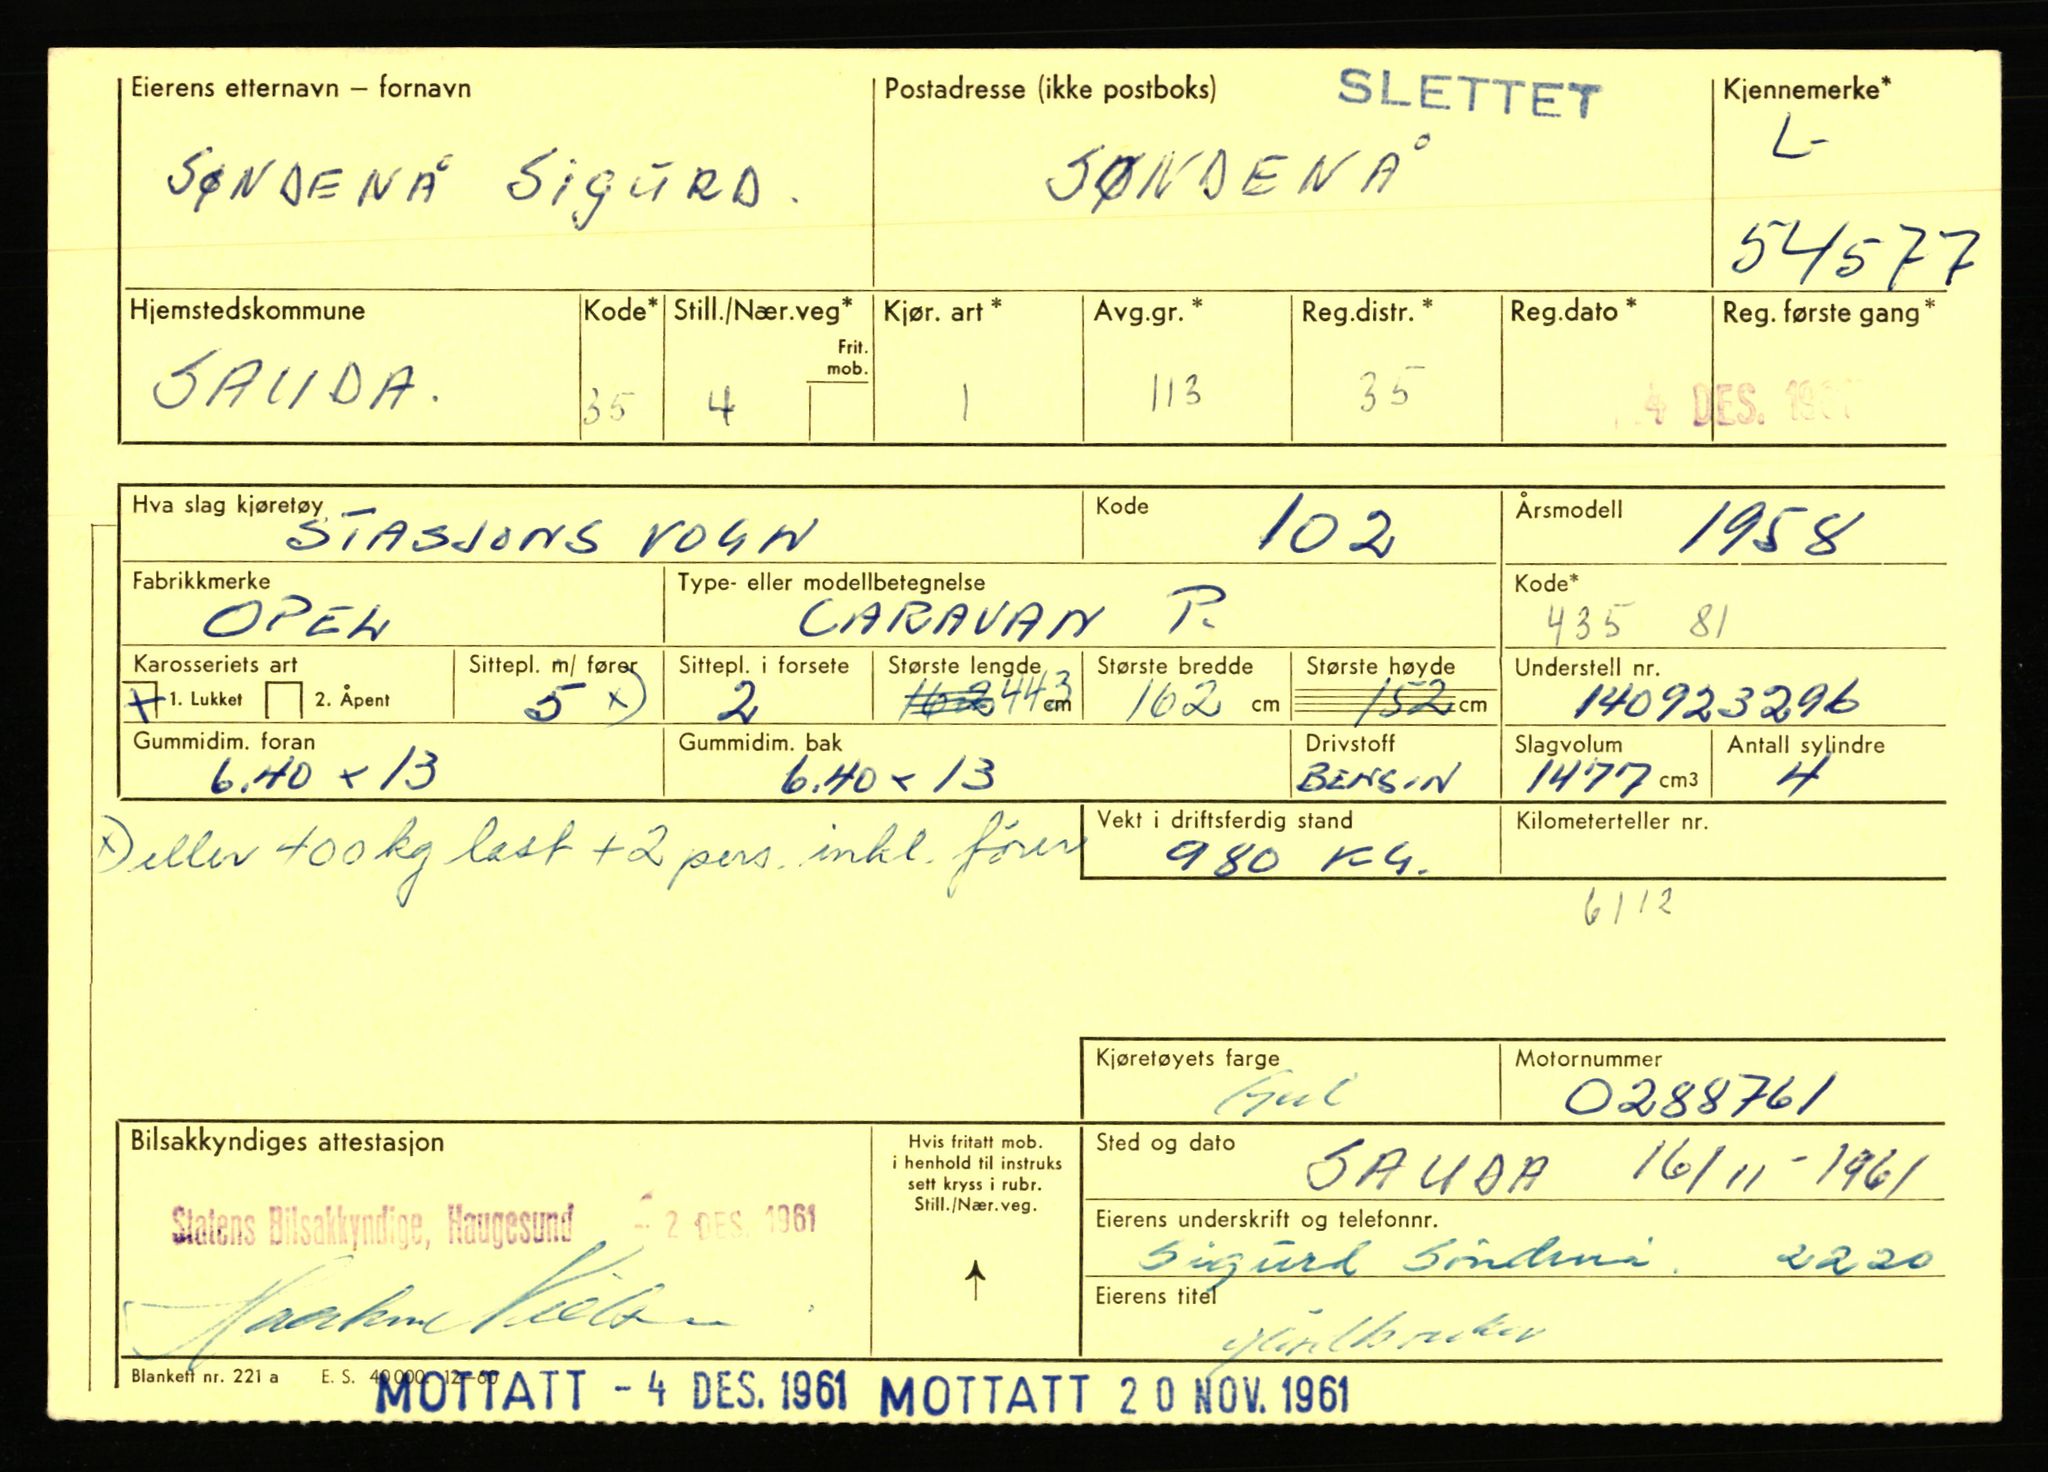 Eierens etternavn – fornavn
Postadresse (ikke postboks)
SLETTET
Kjennemerke*
SØNDENÅ SigURD.
SØNDENÅ
L-
54577
Hjemstedskommune
Kode*
Still./Nær.veg*
Frit. mob.
Kjør. art*
Avg.gr.*
Reg.distr.*
Reg.dato*
Reg. første gang*
SAUDA.
35
4
1
113
35
4 DES. 1961
Hva slag kjøretøy
STASJONS VOGN
Kode
102
Årsmodell
1958
Fabrikkmerke
OPEL
Type- eller modellbetegnelse
CARAVAN P.
Kode*
435 81
Karosseriets art
1. Lukket
2. Åpent
Sittepl. m/ fører
5 x)
Sittepl. i forsete
2
Største lengde
443 cm
Største bredde
162 cm
Største høyde
152 cm
Understell nr.
140923296
Gummidim. foran
6.40 x 13
Gummidim. bak
6.40 x 13
Drivstoff
BENSIN
Slagvolum
1477 cm3
Antall sylindre
4
x) eller 400 kg last + 2 pers. inkl. fører
Vekt i driftsferdig stand
980 KG.
Kilometerteller nr.
6112
Kjøretøyets farge
Gul
Motornummer
0288761
Bilsakkyndiges attestasjon
Statens Bilsakkyndige, Haugesund
- 2 DES. 1961
Hvis fritatt mob.
i henhold til instruks
sett kryss i rubr.
Still./Nær.veg.
Sted og dato
SAUDA 16/11-1961
Eierens underskrift og telefonnr.
Sigurd Søndenå. 2220
Eierens titel
Blankett nr. 221 a E. S. 40000. 12-60
MOTTATT - 4 DES. 1961 MOTTATT 20 NOV. 1961